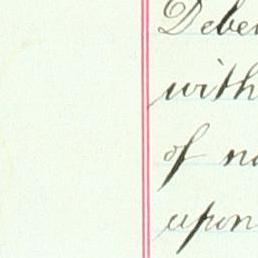 Deben
with
of no
upon